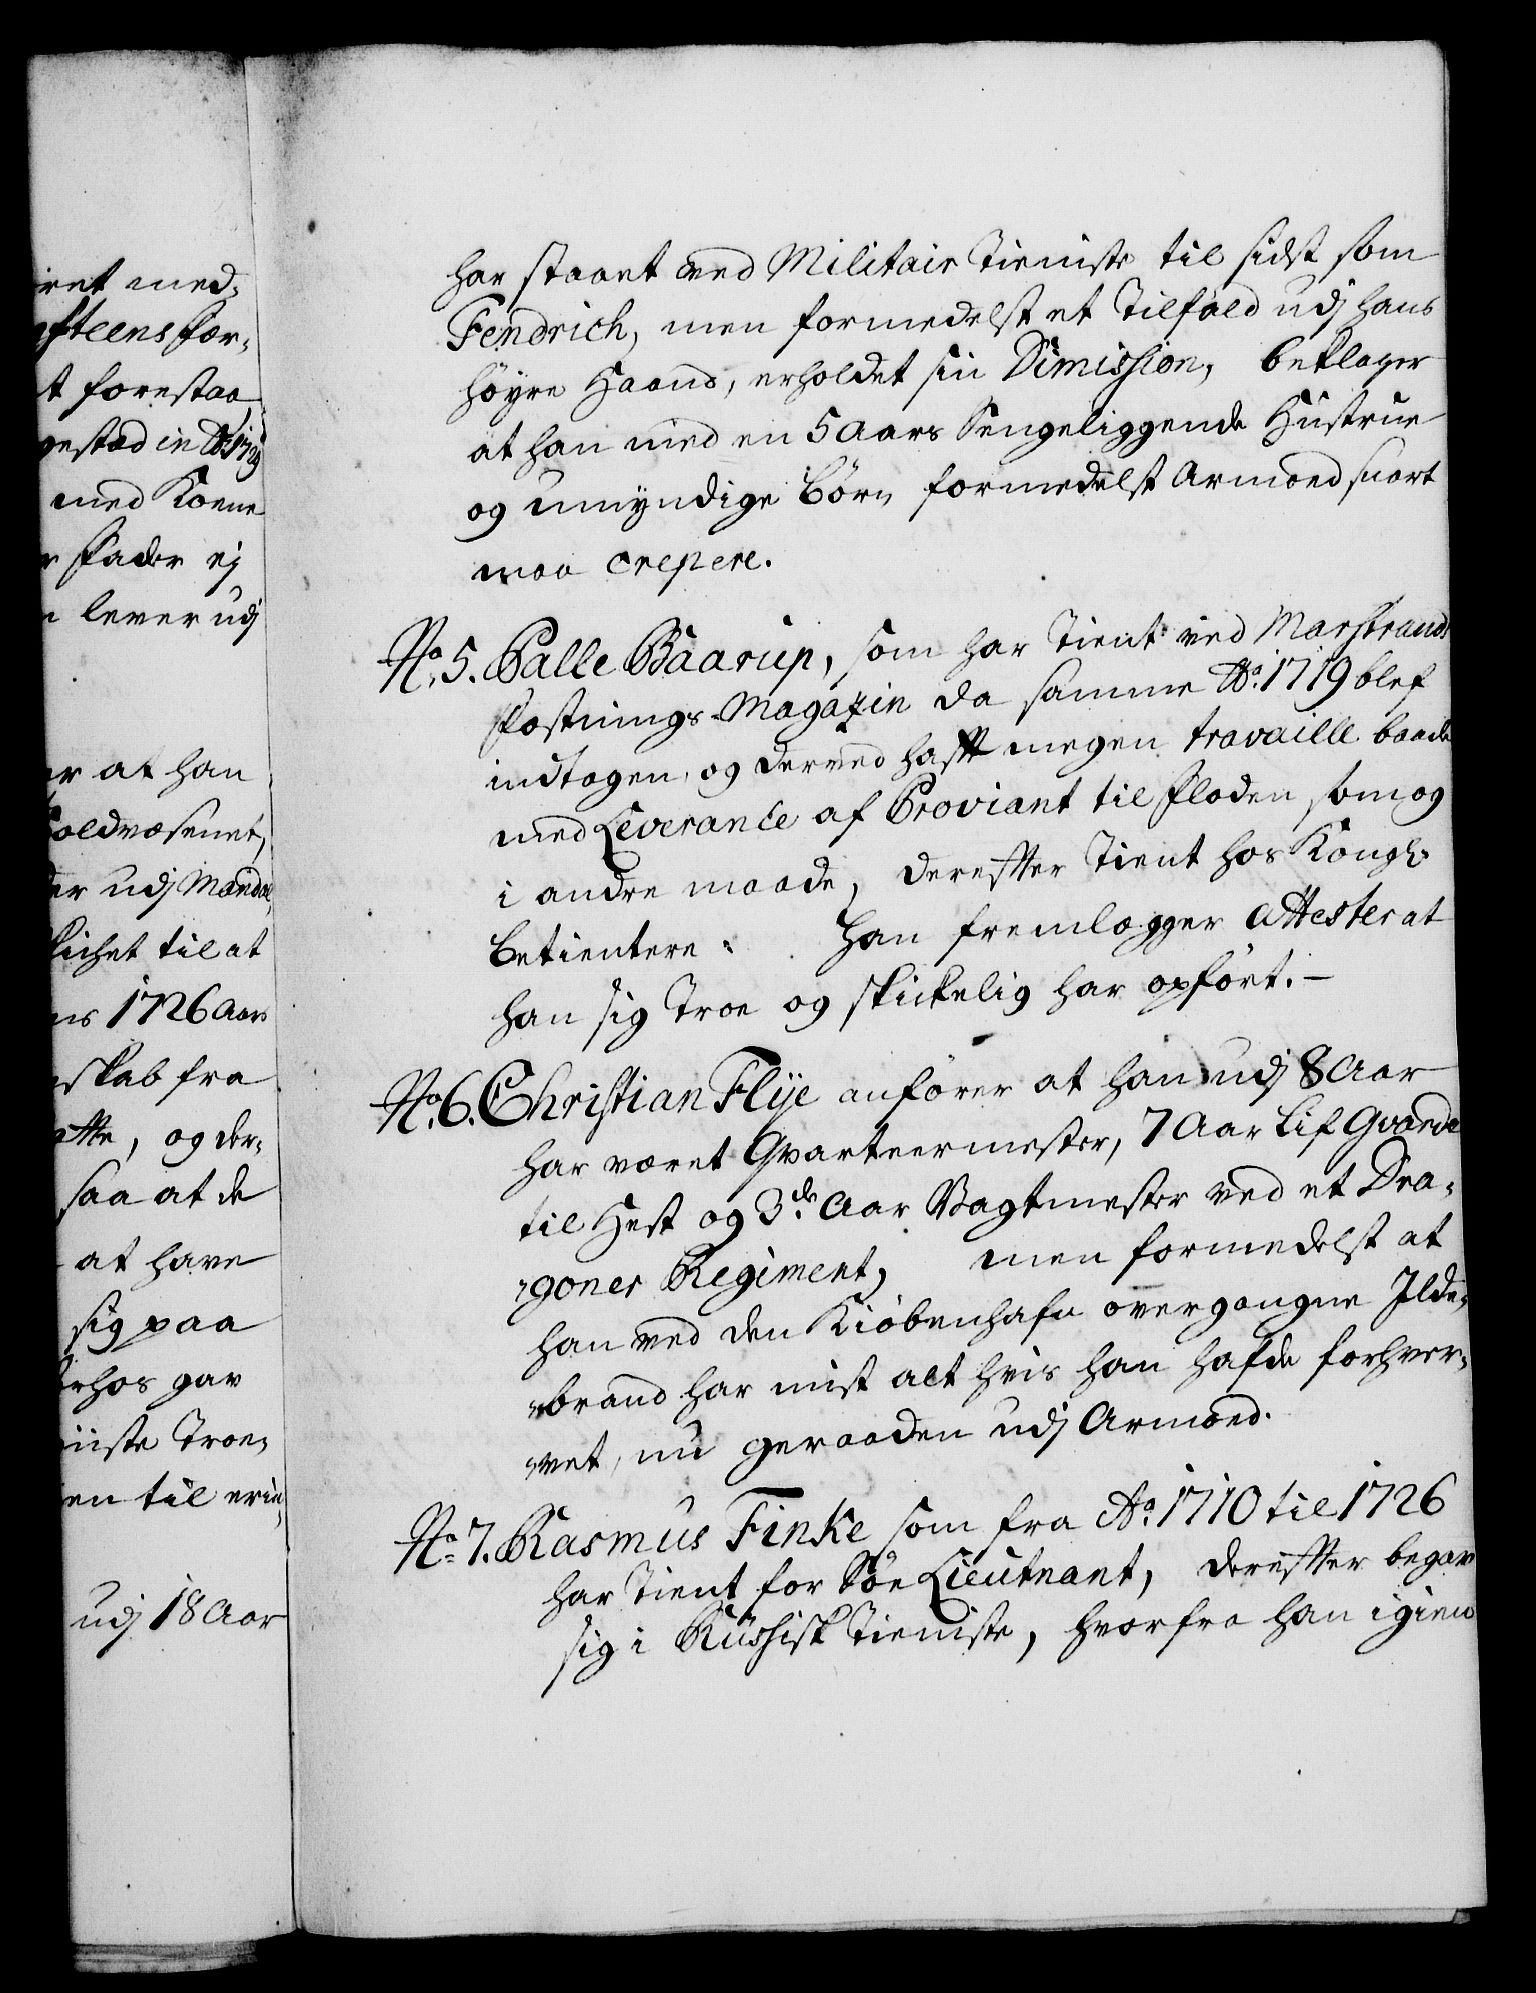 iret med-
afteens før-
t forestaa
gestad in Ao 1729
med Koene
r Fader ej
n lever udj
er at han
Toldvæsenet,
der udj Mandal,
skichet til at
ns 1726 Aars
nskab fra
atte, og der-
saa at de
at have
sig paa
erhos gav
niste Troe-
en til erin-
udj 18 Aar
har staaet ved Militair Tieniste til sidst som
Fendrich, men formedelst et Tilfald udj hans
høyre Haand, erholdet sin Dimission, beklager
at han med en 5 Aars Sengeliggende Hustrue
og umyndige Børn formedelst Armoed snart
maa crepere.
No. 5. Palle Baarup, som har Tient ved Marstrands
Fæstnings-Magazin da samme Ao. 1719 blef
indtagen, og derved hafft megen travaille baade
med Leverance af Proviant til Floden som og
i andre maade, derefter Tient hos Kongl.
betientere. Han fremlægger Attester at
han sig Troe og skikkelig har opført.-
No. 6. Christian Flÿe anfører at han udj 8 Aar
har været Qvarteermester, 7 Aar Lif Gvarde
til Hest og 3de Aar Vagtmester ved et Dra-
goner Regiment, men formedelst at
han ved den Kiøbenhafn overgangne Ilde-
brand har mist alt hvis han hafde forhver-
vet, nu geraaden udj Armoed.
No 7. Rasmus Finke som fra Ao. 1710 til 1726
har Tient for Søe Lieutnant, derefter begav
sig i Russisk Tieniste, hvorfra han igien